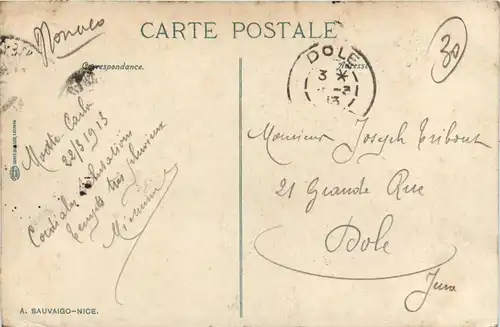 Monaco
CARTE POSTALE
Correspondance.
Adresse
DOLE
3 *
13
30
Monte-Carlo
22/3 1913
Cordiales salutations
Temps très pluvieux
Monsieur Joseph Tribout
21 Grande Rue
Dole
Jura
A. SAUVAIGO-NICE.